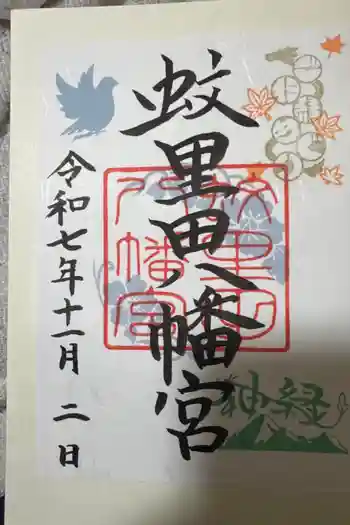 蚊里田八幡宮
令和七年十一月二日
蚊里田
八幡宮
神経